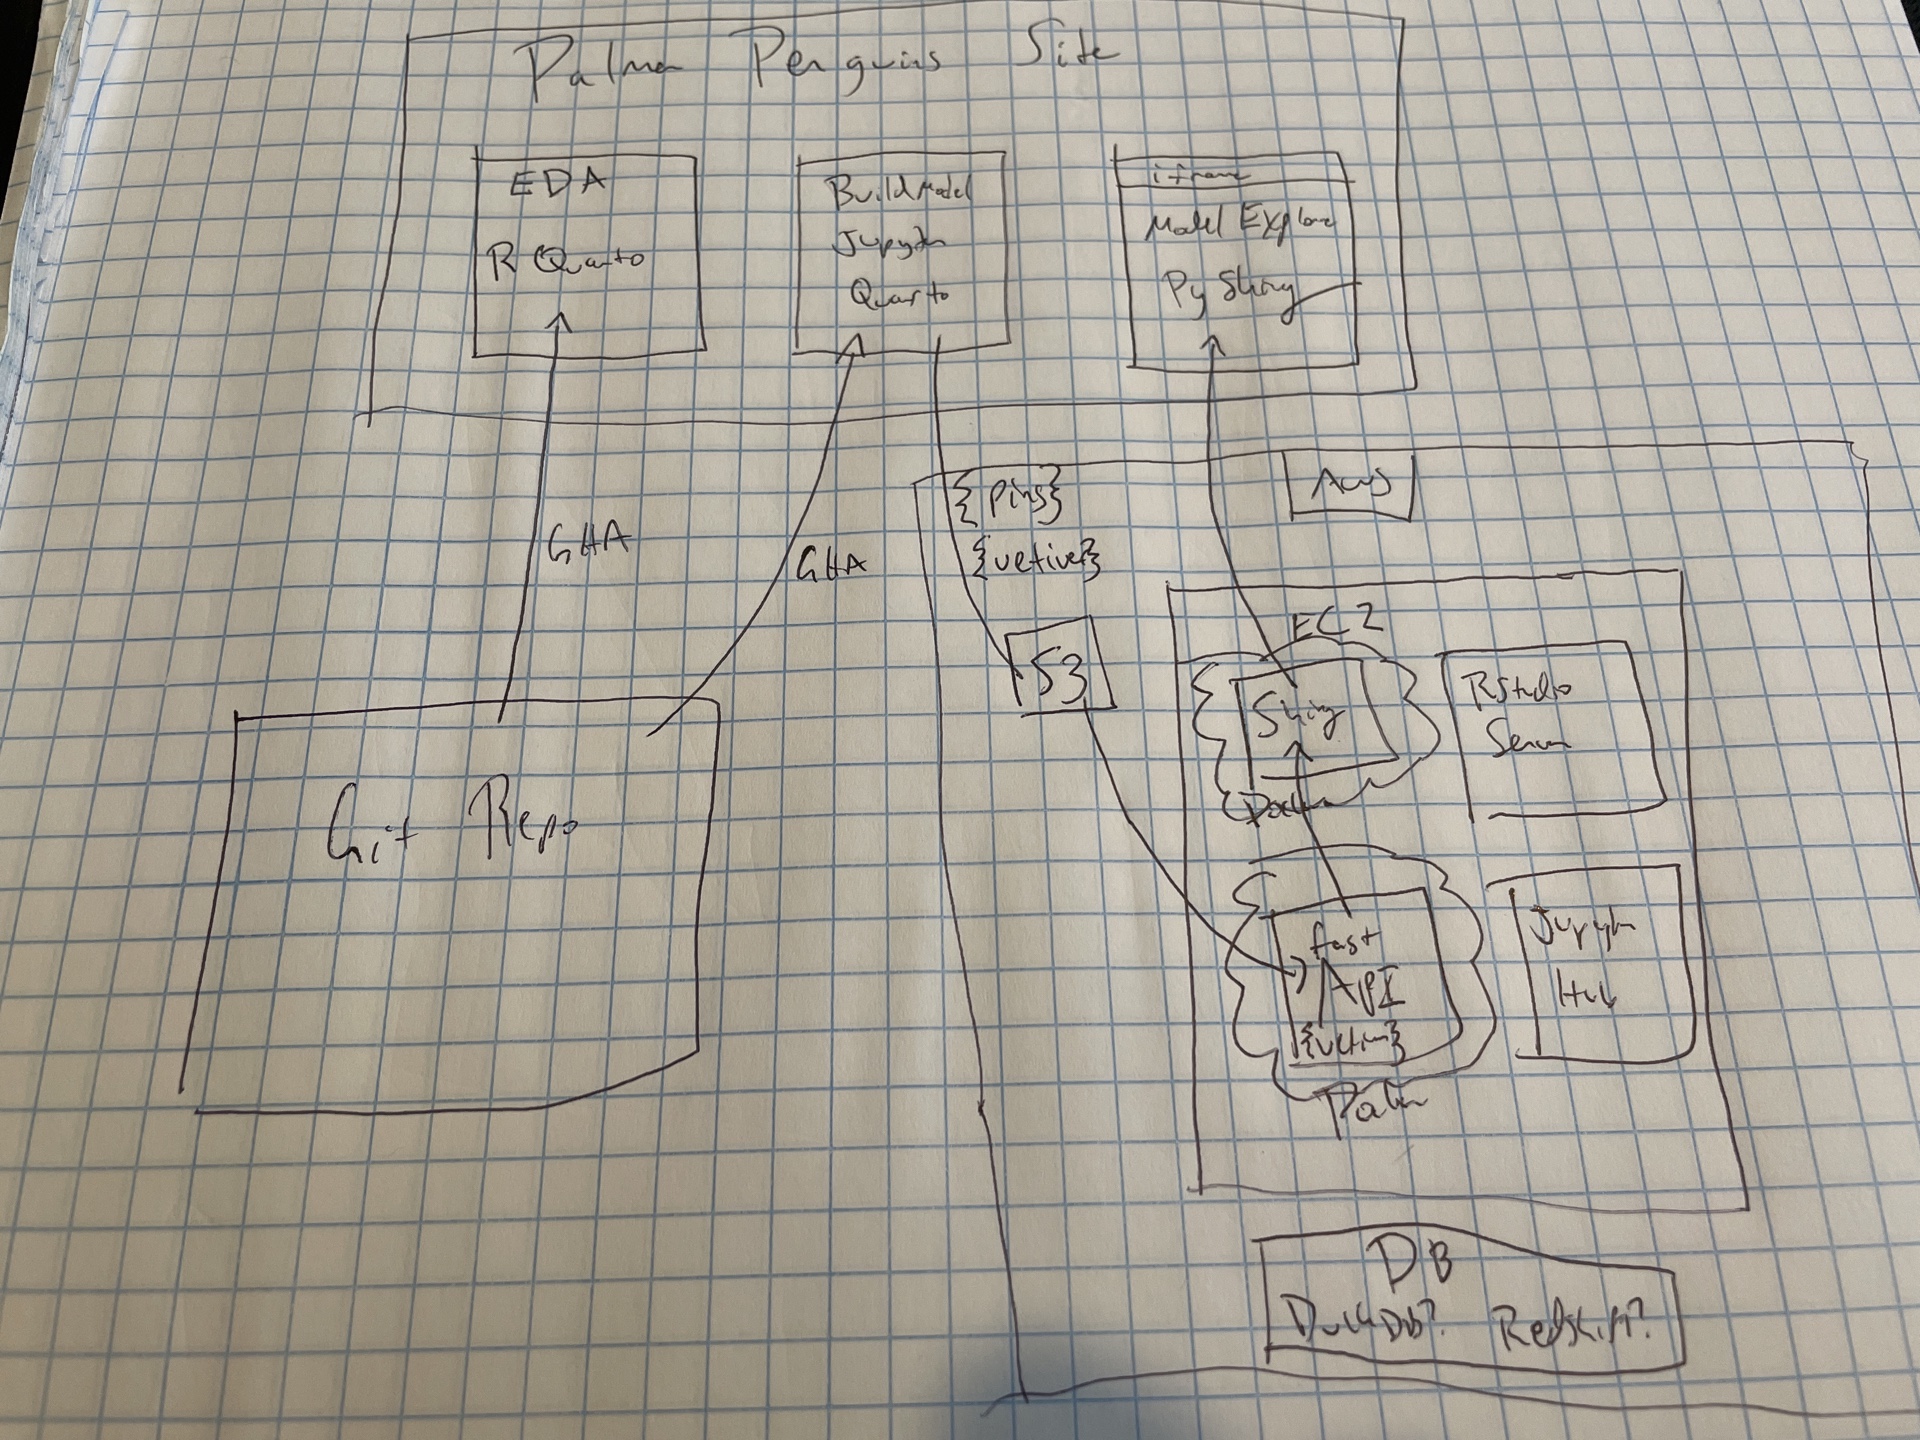 Palmer Penguins Site
EDA
R Quarto
Build Model
Jupyter
Quarto
iframe
Model Explore
Py Shiny
GHA
GHA
{pins}
{vetiver}
AWS
S3
EC2
Shiny
Docker
RStudio
Server
Git Repo
fast
API
{vetiver}
Docker
Jupyter
Hub
DB
DuckDB? Redshift?